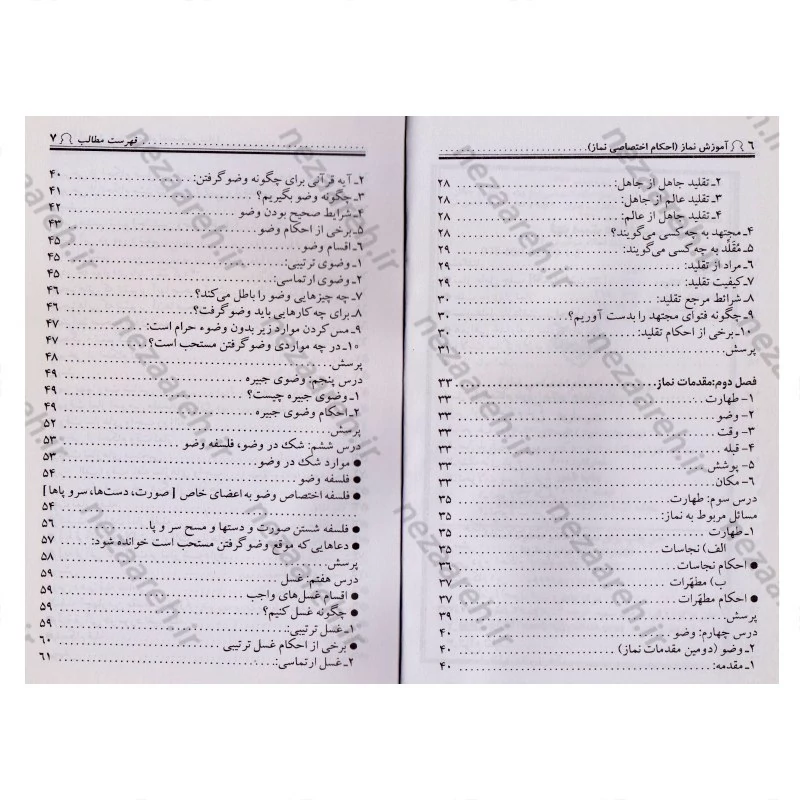 ۶ آموزش نماز (احکام اختصاصی نماز)
۲ـ تقلید جاهل از جاهل: ۲۸
۳ـ تقلید عالم از جاهل: ۲۸
۴ـ تقلید جاهل از عالم: ۲۸
۴ـ مجتهد به چه کسی می‌گویند؟ ۲۸
۵ـ مُقَلَّد به چه کسی می‌گویند: ۲۹
۶ـ مراد از تقلید: ۲۹
۷ـ کیفیت تقلید: ۲۹
۸ـ شرائط مرجع تقلید: ۳۰
۹ـ چگونه فتوای مجتهد را بدست آوریم؟ ۳۰
۱۰ـ برخی از احکام تقلید: ۳۰
پرسش ۳۱
فصل دوم: مقدمات نماز ۳۳
۱ـ طهارت ۳۳
۲ـ وضو ۳۳
۳ـ وقت ۳۳
۴ـ قبله ۳۳
۵ـ پوشش ۳۳
۶ـ مکان ۳۳
درس سوم: طهارت ۳۵
مسائل مربوط به نماز: ۳۵
۱ـ طهارت ۳۵
الف) نجاسات ۳۵
● احکام نجاسات ۳۶
ب) مطهّرات ۳۷
● احکام مطهّرات ۳۷
پرسش ۳۹
درس چهارم: وضو ۴۰
۲ـ وضو (دومین مقدمات نماز) ۴۰
۱ـ مقدمه: ۴۰
فهرست مطالب ۷
۲ـ آیه قرآنی برای چگونه وضو گرفتن: ۴۰
۳ـ چگونه وضو بگیریم؟ ۴۱
۴ـ شرایط صحیح بودن وضو ۴۲
۵ـ برخی از احکام وضو ۴۳
۶ـ اقسام وضو ۴۵
۱ـ وضوی ترتیبی: ۴۵
۲ـ وضوی ارتماسی: ۴۵
۷ـ چه چیزهایی وضو را باطل می‌کند؟ ۴۶
۸ـ برای چه کارهایی باید وضو گرفت؟ ۴۶
۹ـ مس کردن موارد زیر بدون وضوء حرام است: ۴۷
۱۰ـ در چه مواردی وضو گرفتن مستحب است؟ ۴۷
پرسش ۴۸
درس پنجم: وضوی جبیره ۴۹
۱ـ وضوی جبیره چیست؟ ۴۹
۲ـ احکام وضوی جبیره ۴۹
پرسش ۵۲
درس ششم: شک در وضو، فلسفه وضو ۵۳
● موارد شک در وضو ۵۳
● فلسفه وضو ۵۴
● فلسفه اختصاص وضو به اعضای خاص [صورت، دست‌ها، سر و پاها]
۵۴
● فلسفه شستن صورت و دستها و مسح سر و پا ۵۶
● دعاهایی که موقع وضو گرفتن مستحب است خوانده شود: ۵۷
پرسش ۵۸
درس هفتم: غسل ۵۹
● اقسام غسل‌های واجب ۵۹
● چگونه غسل کنیم؟ ۵۹
۱ـ غسل ترتیبی: ۵۹
● برخی از احکام غسل ترتیبی ۶۰
۲ـ غسل ارتماسی: ۶۱
nezaareh.ir